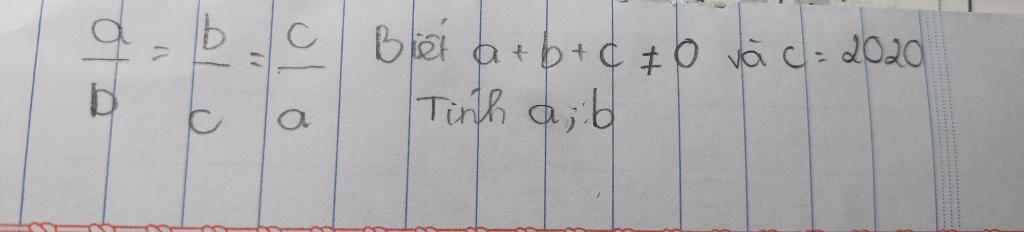 a/b = b/c = c/a Biết a + b + c ≠ 0 và c = 2020
Tính a; b